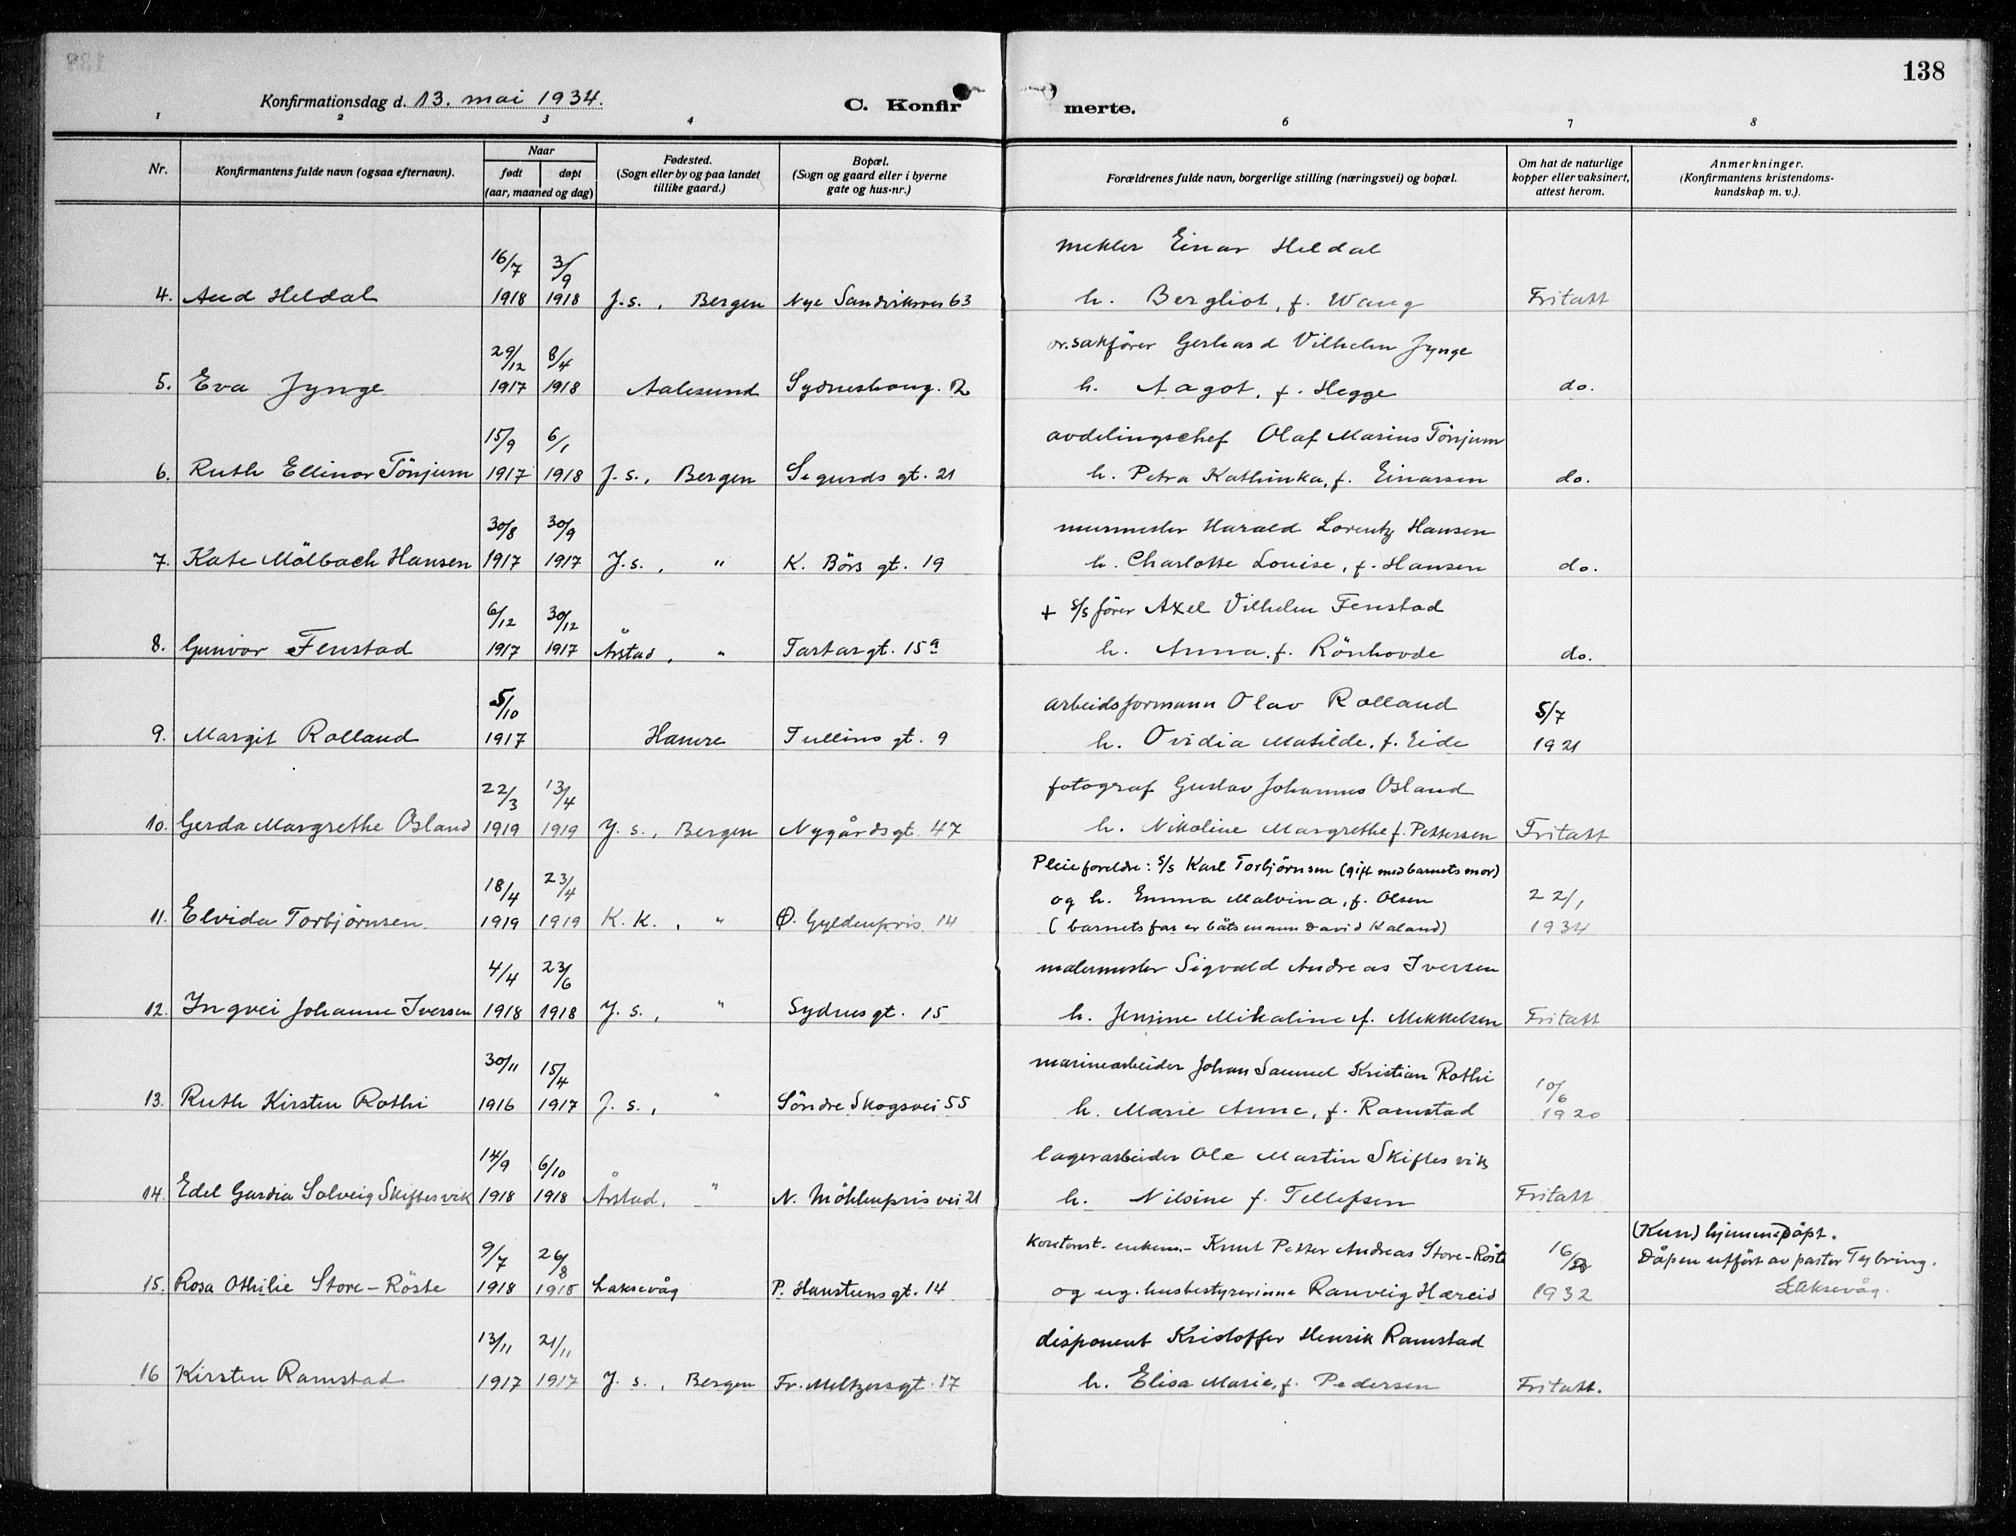 138
Konfirmationsdag d. 13. mai 1934.
C. Konfirmerte.
1 2 3 4 6 7 8
Nr. Konfirmantens fulde navn (ogsaa efternavn). Naar født døpt (aar, maaned og dag) Fødested. (Sogn eller by og paa landet tillike gaard.) Bopæl. (Sogn og gaard eller i byerne gate og hus-nr.) Forældrenes fulde navn, borgerlige stilling (næringsvei) og bopæl. Om hat de naturlige kopper eller vaksinert, attest herom. Anmerkninger. (Konfirmantens kristendomskundskap m. v.).
16/7 3/9 mekler Einar Heldal
4. Aud Heldal 1918 1918 J.s., Bergen Nye Sandviksvei 63 h. Bergliot, f. Wang Fritatt
29/12 8/4 or.sakfører Gerhard Vilhelm Jynge
5. Eva Jynge 1917 1918 Aalesund Sydneshaug. 2 h. Aagot, f. Hegge do.
15/9 6/1 avdelingschef Olaf Marius Tönjum
6. Ruth Ellinor Tönjum 1917 1918 J.s., Bergen Sigurds gt. 21 h. Petra Kathinka, f. Einarsen do.
30/8 30/9 murmester Harald Lorentz Hansen
7. Kate Mölbach Hansen 1917 1917 J.s., " K. Börs gt. 19 h. Charlotte Louise, f. Hansen do.
6/12 30/12 + s/s förer Axel Vilhelm Fenstad
8. Gunvor Fenstad 1917 1917 Årstad, " Tartargt. 15a h. Anna, f. Rönhovde do.
5/10 arbeidsformann Olav Rolland 5/7
9. Margit Rolland 1917 Hamre Tullins gt. 9 h. Ovidia Matilde, f. Eide 1921
22/3 13/4 fotograf Gustav Johannes Osland
10. Gerda Margrethe Osland 1919 1919 J. s., Bergen Nygårdsgt. 47 h. Nikoline Margrethe f. Pettersen Fritatt
18/4 23/4 Pleieforeldre: s/s Karl Torbjørnsen (gift med barnets mor)
og h. Emma Malvina, f. Olsen 22/1
11. Elvida Torbjörnsen 1919 1919 K. K., " Ø. Gyldenpris 14 (barnets far er båtsmann David Kaland) 1934
4/4 23/6 malermester Sigvald Andreas Iversen
12. Ingvei Johanne Iversen 1918 1918 J. s., " Sydnesgt. 15 h. Jensine Mikaline f. Mikkelsen Fritatt
30/11 15/4 marinearbeider Johan Samuel Kristian Rothi 10/6
13. Ruth Kirsten Rothi 1916 1917 J. s., " Söndre Skogsvei 55 h. Marie Anne, f. Ramstad 1920
14/9 6/10 lagerarbeider Ole Martin Skiftesvik
14. Edel Gardia Solveig Skiftesvik 1918 1918 Årstad, " N. Möhlenpris vei 21 h. Nilsine f. Tellefsen Fritatt
9/7 26/8 Knut Petter Andreas Store-Röste 16/ (Kun) hjemmedöpt. Dåpen utfört av pastor Tybring.
15. Rosa Othilie Store-Röste 1918 1918 Laksevåg P. Hanstensgt. 14 og ug. husbestyrerinne Ranveig Hæreid 1932 Laksevåg.
13/11 21/11 disponent Kristoffer Henrik Ramstad
16 Kirsten Ramstad 1917 1917 J. s., Bergen Fr. Meltzersgt. 17 h. Elisa Marie, f. Pedersen Fritatt.